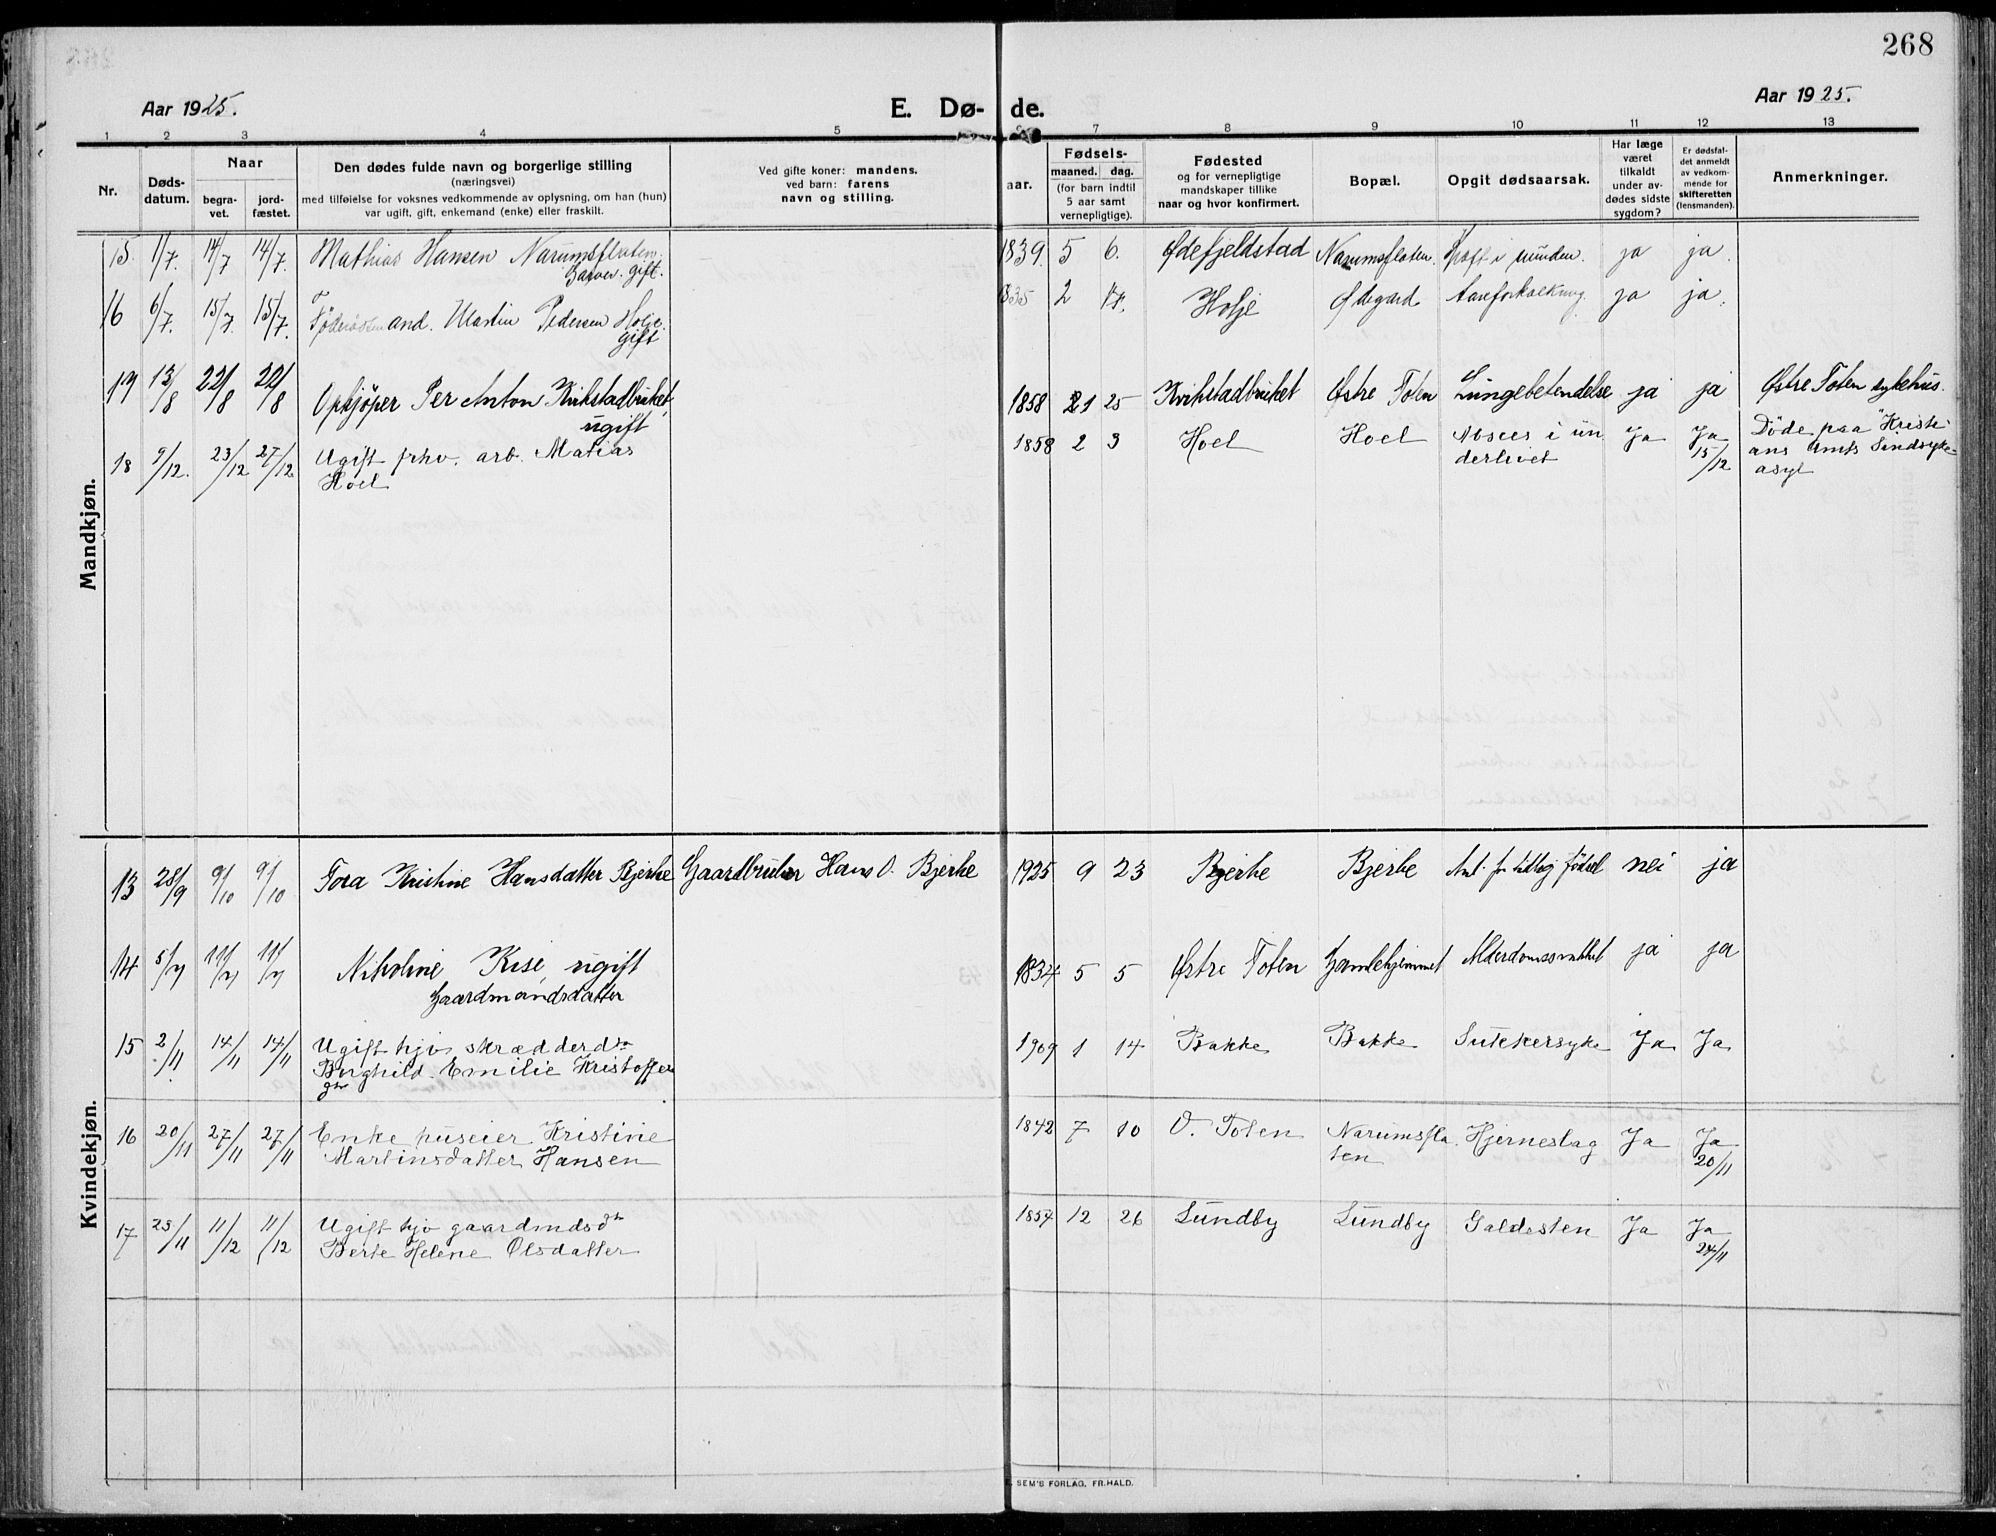 268
Aar 1925.
E. Dø- de.
Aar 1925.
1 2 3 4 5 6 7 8 9 10 11 12 13
Nr.
Døds-
datum.
Naar
begra-
vet.
jord-
fæstet.
Den dødes fulde navn og borgerlige stilling
(næringsvei)
med tilføielse for voksnes vedkommende av oplysning, om han (hun)
var ugift, gift, enkemand (enke) eller fraskilt.
Ved gifte koner: mandens.
ved barn: farens
navn og stilling.
aar.
Fødsels-
maaned. dag.
(for barn indtil
5 aar samt
vernepligtige).
Fødested
og for vernepligtige
mandskaper tillike
naar og hvor konfirmert.
Bopæl.
Opgit dødsaarsak.
Har læge
været
tilkaldt
under av-
dødes sidste
sygdom?
Er dødsfal-
det anmeldt
av vedkom-
mende for
skifteretten
(lensmanden).
Anmerkninger.
Mandkjøn.
15 1/7. 14/7 14/7. Mathias Hansen Narumsflaten. 1839. 5 6. Ødefjeldstad Narumsflaten. Kræft i munden. ja ja.
Garver. gift.
16 6/7. 15/7. 15/7. Føderaadsmand. Martin Pedersen Holje. 1835 2 Holje Ødegard Aareforkalkning. ja ja.
gift
17 13/8 22/8 22/8 Opkjøper Per Anton Kvikstadbruket, 1858 21 25 Kvikstadbruket Østre Toten Lungebetendelse ja ja Østre Toten sykehus.
ugift
18 9/12. 23/12 27/12 Ugift frhv. arb. Matias 1858 2 3 Hoel Hoel Absces i un Ja Ja Døde paa "Kristi-
Hoel derlivet 15/12 ans Amts Sindsyke-
asyl
Kvindekjøn.
13 28/9 9/10 9/10 Tora Kristine Hansdatter Bjerke Gaardbruker Hans O. Bjerke 1925 9 23 Bjerke Bjerke Ant. for tidlig fødsel nei ja
14 5/7 11/7 11/7 Nikoline Kise, ugift 1834 5 5 Østre Toten Gamlehjemmet Alderdomssvakhet ja ja
Gaardmandsdatter
15 2/11 14/11 14/11 Ugift hjv. skrædderdtr 1909 1 14 Bakke Bakke Sukkersyke Ja Ja
Borghild Emilie Kristoffers
dtr
16 20/11 27/11 27/11 Enke huseier Kristine 1842 7 10 Ø. Toten Narumsfla Hjerneslag Ja Ja
Martinsdatter Hansen ten 20/11
17 23/11 11/12 11/12 Ugift hjv gaardmdsdtr 1857 12 26 Lundby Lundby Galdesten Ja Ja
Berte Helene Olsdatter 24/11
SEM'S FORLAG, FR.HALD.